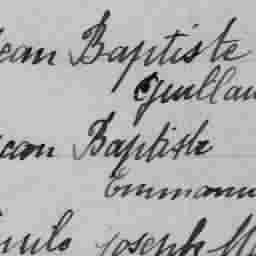 Jean Baptiste
Guillau
Jean Baptiste
Emmanu
Joseph M